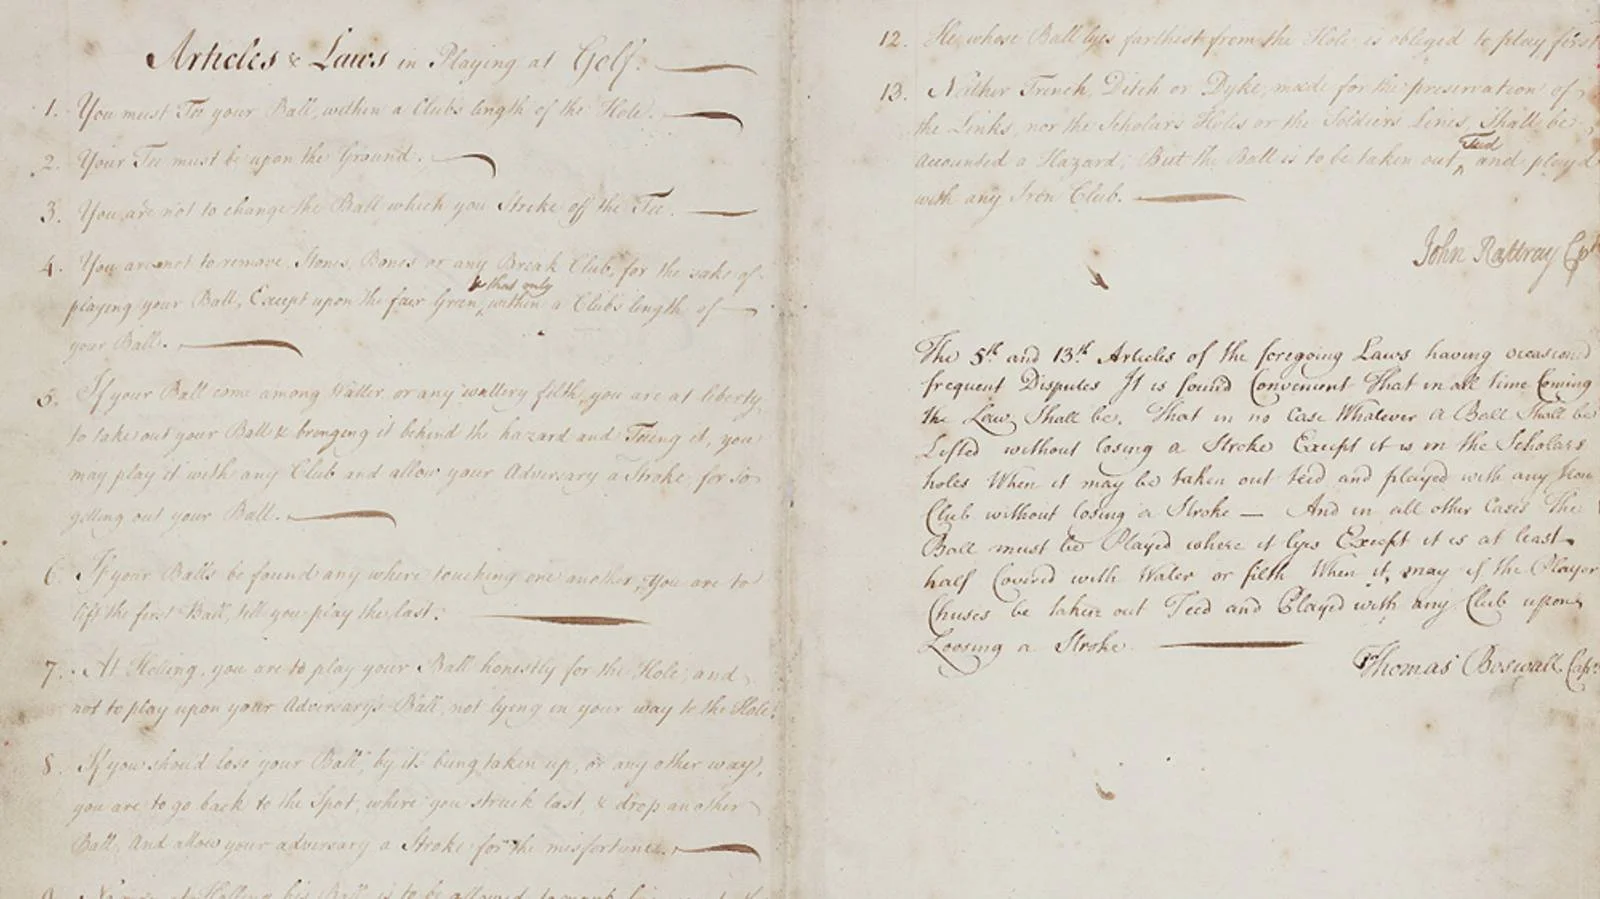 Articles & Laws in Playing at Golf.
1. You must Tee your Ball, within a Club's length of the Hole.
2. Your Tee must be upon the Ground.
3. You are not to change the Ball which you Stroke off the Tee.
4. You are not to remove, Stones, Bones or any Break Club, for the sake of
& that only
playing your Ball, Except upon the fair Green, within a Club's length of
your Ball.
5. If your Ball come among Watter, or any wattery filth, you are at liberty
to take out your Ball & bringing it behind the hazard and Teeing it, you
may play it with any Club and allow your Adversary a Stroke, for so
getting out your Ball.
6. If your Balls be found any where touching one another, You are to
lift the first Ball, till you play the last.
7. At Holling, you are to play your Ball honestly for the Hole, and
not to play upon your Adversary's Ball, not lying in your way to the Hole.
8. If you should lose your Ball, by it's being taken up, or any other way,
you are to go back to the Spot, where you struck last, & drop another
Ball, And allow your adversary a Stroke for the misfortune.
9. No man at Holling his Ball, is to be allowed, to mark
12. He, whose Ball lyes farthest from the Hole is obliged to play first
13. Neither Trench, Ditch or Dyke, made for the preservation of
the Links, nor the Scholars Holes or the Soldiers Lines, Shall be
accounted a Hazard; But the Ball is to be taken out
Teed
and play'd
with any Iron Club.
John Rattray Cpt
The 5th and 13th Articles of the foregoing Laws having occasioned
frequent Disputes It is found Convenient That in all time Coming
the Law Shall be, That in no Case Whatever a Ball Shall be
Lifted without losing a Stroke Except it is in the Scholars
holes When it may be taken out teed and played with any Iron
Club without losing a Stroke — And in all other Cases The
Ball must be Played where it lyes Except it is at least
half Covered with Water or filth When it may if the Player
Chuses be taken out Teed and Played with any Club upon
Loosing a Stroke
Thomas Boswall Capt.